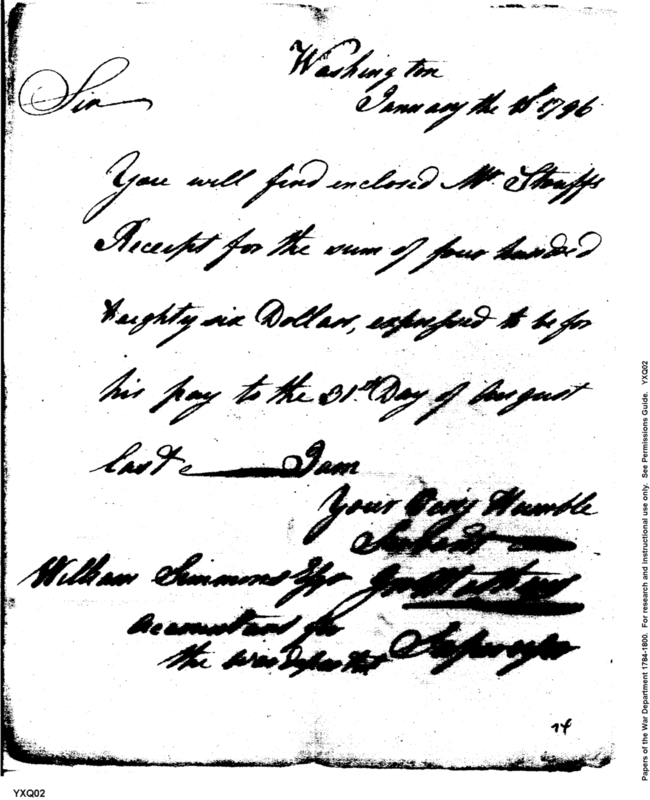 Washington
January the 1796
Sir
You will find enclosed Mr. Stuffs
Receipt for the sum of four hundred
& eighty six Dollars, expressed to be for
his pay to the 31st Day of August
last I am
Your Very Humble
Servant
William Simmons Esqr
Accountant for
the War Department
74
Papers of the War Department 1784-1800. For research and instructional use only. See Permissions Guide. YXQ02
YXQ02